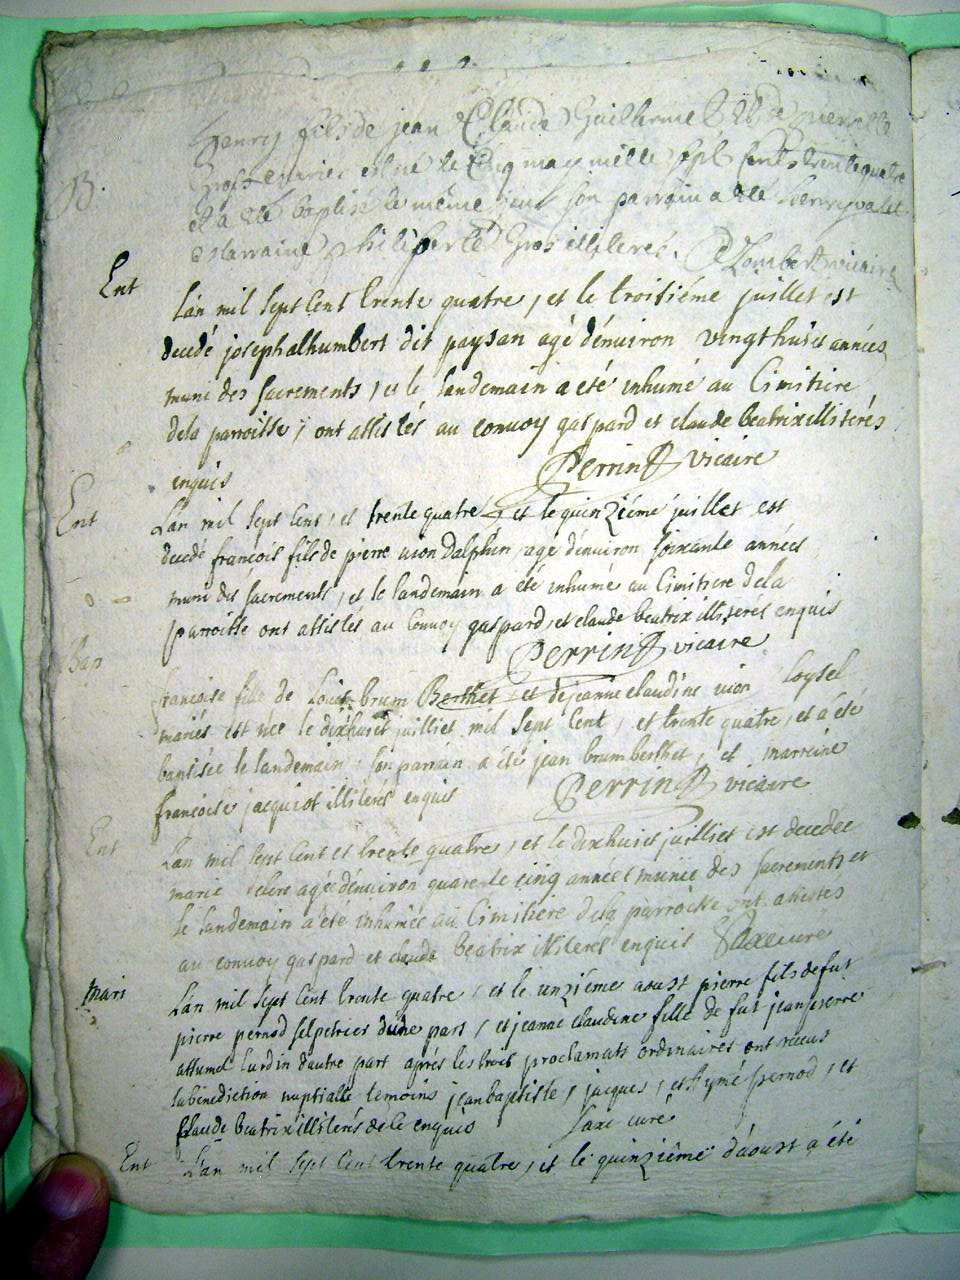 henry fils de jean Claude Guilherme
mariés est né le cinq may mille sept cents trente quatre
et a été baptisé le même jour son parrain a été henry
marraine philiberte Gros illiteres. vicaire
B.
Ent
L'an mil sept cent trente quatre, et le troisiéme juillet est
decedé joseph alhumbert dit paysan agé dénuiron vingthuict années
muni des sacrements, et le landemain a eté inhumé au Cimitiere
dela parroisse, ont assistés au convoy gaspard et claude beatrix illiterés
enquis Perrin vicaire
Ent
L'an mil sept cent, et trente quatre, et le quinziémé juillet est
decedé françois fils de pierre uion Dalphin, agé dénuiron soixante années
muni des sacrements, et le landemain a été inhumé au Cimitiere dela
parroisse ont assistés au convoy gaspard, et claude beatrix illiterés enquis
Perrin vicaire
Bap
françoise fille de Louis brum Berthet, et de jeanne claudine uion Loysel
mariés est née le dixhuict juilliet mil sept cent, et trente quatre, et a été
baptisée le landemain, son parrain a été jean brum berthet, et marreine
françoise jacquiot illiteres enquis Perrin vicaire
Ent
L'an mil sept cent et trente quatre, et le dixhuict juilliet est decedee
marie agé dénuiron quarente cinq années munie des sacrements et
le landemain a été inhumée au Cimitiere dela parroisse ont assistes
au convoy gaspard et claude beatrix illiteres enquis Saxe cure
mari
L'an mil sept cent trente quatre, et le unziéme aoust pierre fils de fut
pierre pernod salpetrier dune part, et jeanne claudine fille de fut jean pierre
lardin dautre part apres les trois proclamats ordinaires ont receus
la benediction nuptialle temoins jean baptiste, jacques, et aymé pernod, et
Claude beatrix illiterés de ce enquis Saxe curé
Ent
L'an mil sept cent trente quatre, et le quinziême d'aoust a été